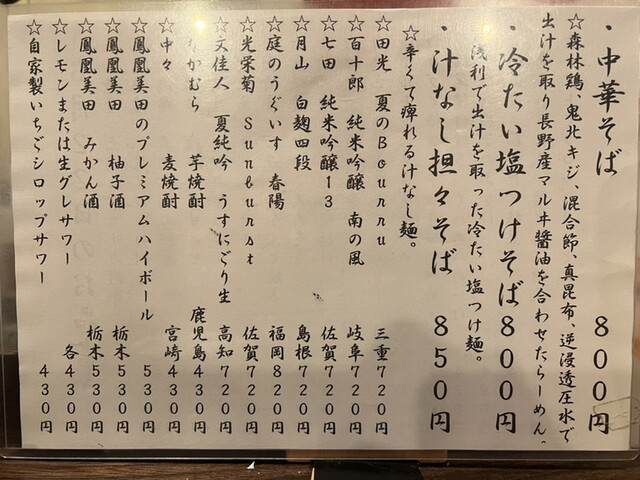 ・中華そば ８００円
☆森林鶏、鬼北キジ、混合節、真昆布、逆浸透圧水で
出汁を取り長野産マルヰ醬油を合わせたらーめん。
・冷たい塩つけそば８００円
浅利で出汁を取った冷たい塩つけ麺。
・汁なし担々そば ８５０円
☆辛くて痺れる汁なし麺。
☆田光 夏のＢｏｕｒｒｕ 三重７２０円
☆百十郎 純米吟醸 南の風 岐阜７２０円
☆七田 純米吟醸１３ 佐賀７２０円
☆月山 白麹四段 島根７２０円
☆庭のうぐいす 春陽 福岡８２０円
☆光栄菊 Ｓｕｎｂｕｒｓｔ 佐賀７２０円
☆文佳人 夏純吟 うすにごり生 高知７２０円
なかむら 芋焼酎 鹿児島４３０円
☆中々 麦焼酎 宮崎４３０円
☆鳳凰美田のプレミアムハイボール ５３０円
☆鳳凰美田 柚子酒 栃木５３０円
☆鳳凰美田 みかん酒 栃木５３０円
☆レモンまたは生グレサワー 各４３０円
☆自家製いちごシロップサワー ４３０円